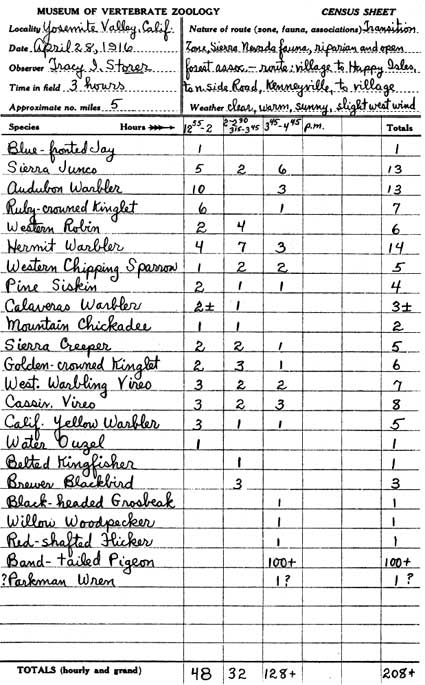 MUSEUM OF VERTEBRATE ZOOLOGY CENSUS SHEET
Locality Yosemite Valley, Calif. Nature of route (zone, fauna, associations) Transition
Date April 28, 1916 Zone, Sierra Nevada fauna, riparian and open
Observer Tracy I. Storer forest assoc. – route: village to Happy Isles,
Time in field 3 hours to n. side Road, Kenneyville, to village
Approximate no. miles 5 Weather clear, warm, sunny, slight west wind
Species Hours 12 55-2 2-2 30 3 15-3 45 3 45-4 45 p.m. Totals
Blue-fronted Jay 1 1
Sierra Junco 5 2 6 13
Audubon Warbler 10 3 13
Ruby-crowned Kinglet 6 1 7
Western Robin 2 4 6
Hermit Warbler 4 7 3 14
Western Chipping Sparrow 1 2 2 5
Pine Siskin 2 1 1 4
Calaveras Warbler 2± 1 3±
Mountain Chickadee 1 1 2
Sierra Creeper 2 2 1 5
Golden-crowned Kinglet 2 3 1 6
West. Warbling Vireo 3 2 2 7
Cassin. Vireo 3 2 3 8
Calif. Yellow Warbler 3 1 1 5
Water Ouzel 1 1
Belted Kingfisher 1 1
Brewer Blackbird 3 3
Black-headed Grosbeak 1 1
Willow Woodpecker 1 1
Red-shafted Flicker 1 1
Band-tailed Pigeon 100+ 100+
?Parkman Wren 1? 1?
TOTALS (hourly and grand) 48 32 128+ 208+